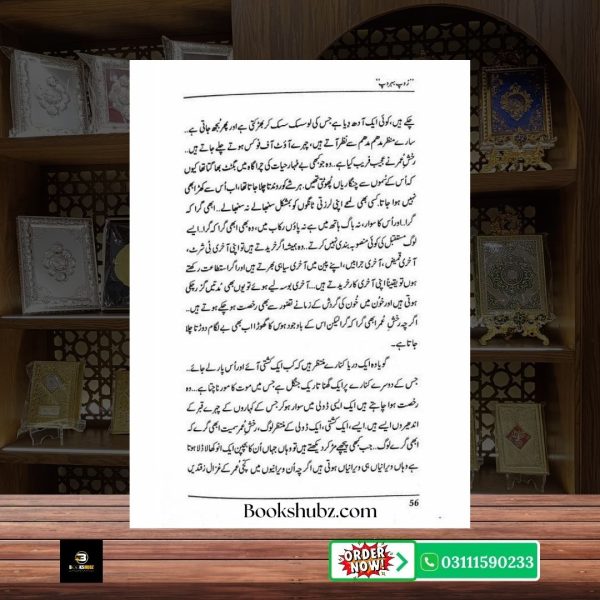 ”رُوپ بہروپ“
چکے ہیں، کوئی ایک آدھ دِیا ہے جس کی لَو سسک سسک کر بھڑکتی ہے اور پھر بجھ جاتی ہے..
سارے منظر مدھم مدھم سے نظر آتے ہیں، چہرے آؤٹ آف فوکس ہوتے چلے جاتے ہیں..
رخشِ عمر نے عجیب فریب کیا ہے.. وہ جو کبھی بے مہار حیات کی چراگاہ میں بگٹٹ بھاگتا تھا کیوں
کہ اُس کے سُموں سے چنگاریاں پھوٹتی تھیں. ہر شے کو روندتا چلا جاتا تھا، اب اُس سے کھڑا بھی
نہیں ہوا جاتا. کسی بھی لمحے اپنی لرزتی ٹانگوں کو بمشکل سنبھالے نہ سنبھالے... ابھی گرا کہ
گرا.. اور اُس کا سوار، نہ باگ ہاتھ میں ہے نہ پاؤں رکاب میں، وہ بھی ابھی گرا کہ گرا.. ایسے
لوگ مستقبل کی کوئی منصوبہ بندی نہیں کرتے.. وہ ہمیشہ اگر خریدتے ہیں تو اپنی آخری ٹی شرٹ،
آخری قمیض، آخری جرابیں، اپنے پین میں آخری سیاہی بھرتے ہیں اور اگر استطاعت رکھتے
ہوں تو یقیناً اپنی آخری کار خریدتے ہیں... آخری بوسہ لیے ہوئے تو یوں بھی مُدتیں گزر چکی
ہوتی ہیں اور خون میں خُون کی گردش کے زمانے تصور سے بھی رخصت ہو چکے ہوتے ہیں..
اگرچہ رخشِ عُمر ابھی گرا کہ گرا لیکن اس کے باوجود ہوس کا گھوڑا اب بھی بے لگام دوڑتا چلا
جاتا ہے۔
گویا وہ ایک دریا کنارے منتظر ہیں کہ کب ایک کشتی آئے اور اُس پار لے جائے..
جس کے دوسرے کنارے پر ایک گھنا تاریک جنگل ہے جس میں موت کا مور ناچتا ہے... وہ
رخصت ہوا چاہتے ہیں ایک ایسی ڈولی میں سوار ہو کر جس کے کہاروں کے چہرے قبر کے
اندھیروں ایسے ہیں. ایسے، ایک کشتی، ایک ڈولی کے منتظر لوگ، رخشِ عُمر سمیت ابھی گرے کہ
ابھی گرے لوگ.. جب کبھی پیچھے مڑ کر دیکھتے ہیں تو وہاں جہاں اُن کا بچپن ایک انوکھا لاڈلا ہوتا
ہے وہاں ویرانیاں ہی ویرانیاں ہوتی ہیں اگرچہ اُن ویرانیوں میں کچی عُمر کے غزال زقندیں
56
Bookshubz.com
BOOKSHUBZ
ORDER NOW!
03111590233